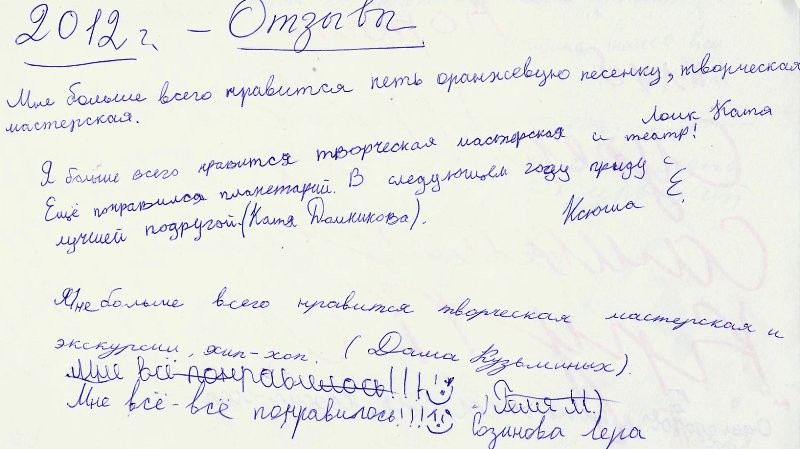 2012 г. - Отзывы
Мне больше всего нравится петь оранжевую песенку, творческая
мастерская.
Лоик Катя
Я больше всего нравится творческая мастерская и театр!
Ещё понравился планетарий. В следующем году приду с
лучшей подругой (Катя Домникова).
Ксюша Е.
Мне больше всего нравится творческая мастерская и
экскурсии, хип-хоп. (Даша Кузьминых).
Мне всё понравилось!!!
Мне всё-всё понравилось!!!
Созинова Лера